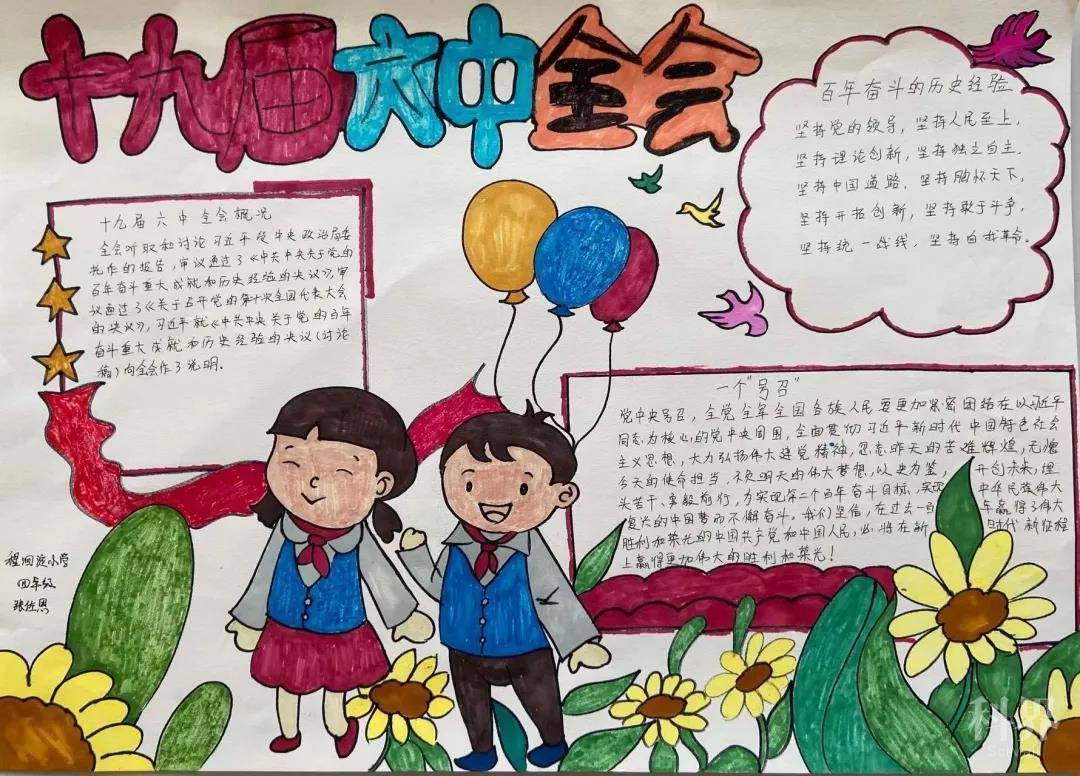 十九届六中全会
百年奋斗的历史经验
坚持党的领导,坚持人民至上,
坚持理论创新,坚持独立自主.
坚持中国道路、坚持胸怀天下,
坚持开拓创新,坚持敢于斗争,
坚持统一战线,坚持自我革命。
十九届六中全会概况
全会听取和讨论习近平受中央政治局委
托作的报告,审议通过了《中共中央关于党的
百年奋斗重大成就和历史经验的决议》,审
议通过了《关于召开党的第二十次全国代表大会
的决议》,习近平就《中共中央关于党的百年
奋斗重大成就和历史经验的决议(讨论
稿)向全会作了说明.
一个"号召"
党中央号召,全党全军全国各族人民要更加紧密团结在以习近平
同志为核心的党中央周围,全面贯彻习近平新时代中国特色社会
主义思想,大力弘扬伟大建党精神,忽忘昨天的苦难辉煌,无愧
今天的使命担当,不负明天的伟大梦想,以史为鉴,开创未来,埋
头苦干、勇毅前行,为实现第二个百年奋斗目标,实现中华民族伟大
复兴的中国梦而不懈奋斗。我们坚信,在过去一百年赢得了伟大
胜利和荣光的中国共产党和中国人民,必将在新时代新征程
上赢得更加伟大的胜利和荣光!
小学
四年级
科界